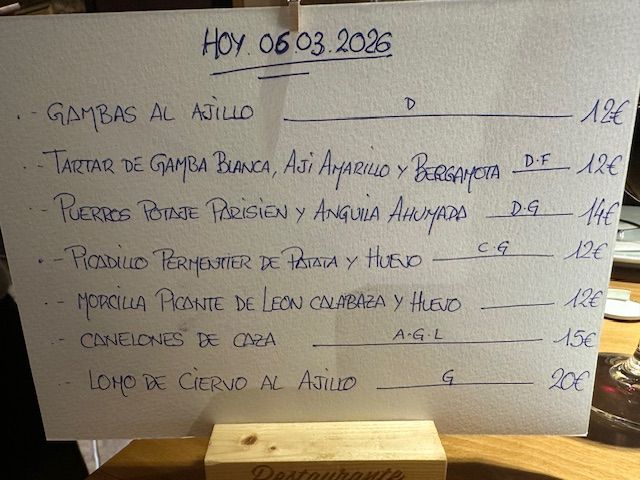 HOY 06.03.2026
.- GAMBAS AL AJILLO D 12€
- TARTAR DE GAMBA BLANCA, AJI AMARILLO Y BERGAMOTA D.F 12€
.- PUERROS POTAJE PARISIEN Y ANGUILA AHUMADA D.G 14€
.- PICADILLO PERMENTIER DE PATATA Y HUEVO C.G 12€
.- MORCILLA PICANTE DE LEON CALABAZA Y HUEVO 12€
.- CANELONES DE CAZA A.G.L 15€
.- LOMO DE CIERVO AL AJILLO G 20€
Restaurante